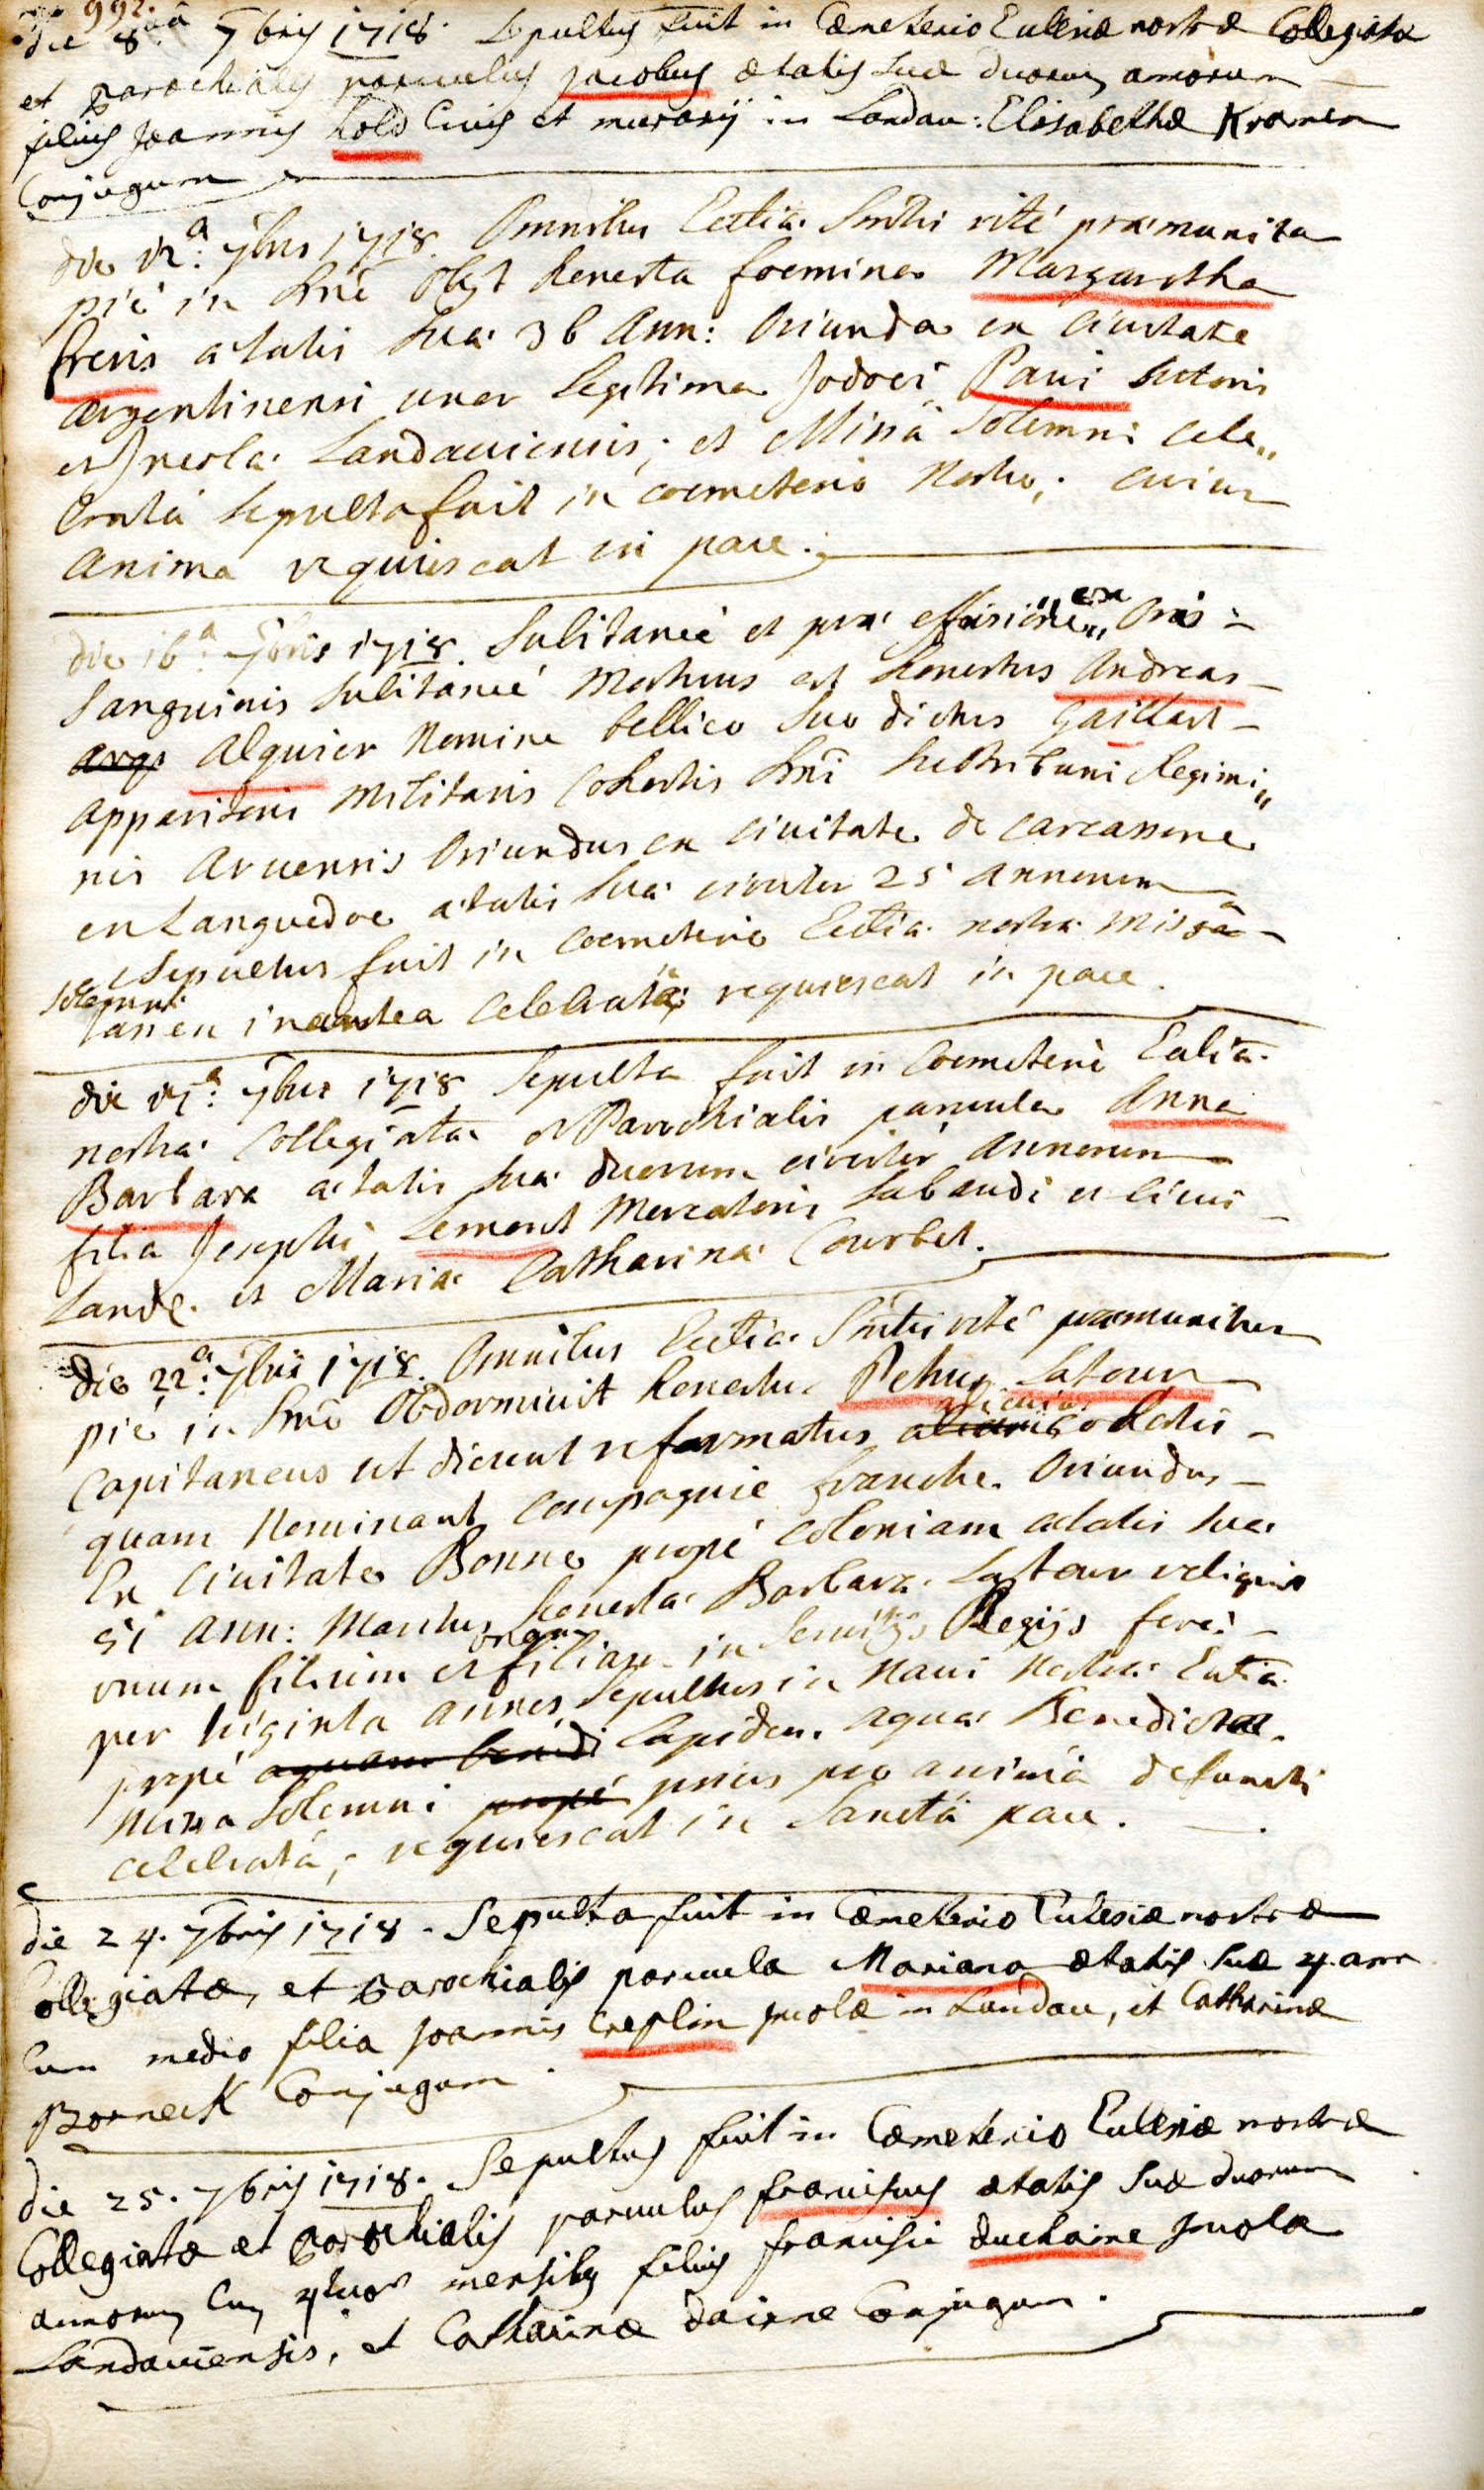 992.
die 8.va 7bris 1718. Sepultus fuit in Cæmeterio Eclesiæ nostræ Collegiatæ
et parochialis parvulus jacobus ætatis suæ duorum annorum
filius Joannis Hold Civis et murarij in Landau: Elisabethæ Kramer
Conjugum
die 12.a 7bris 1718. Omnibus Ecclia Smtis rité præmunita
pié in Dnõ obijt honesta foemina Margaretha
freris ætatis suæ 36 Ann: Oriunda ex ciuitate
argentinensi uxor legitima Jodoci Paui sutoris
et Jncolæ Landauiensis; et Missâ solemni cele„
bratâ sepulta fuit in coemeterio nostro; cuius
anima requiescat in pace.
die 16.a 7bris 1718. Subitaneé et præ effusione ex Oris
sanguinis subitaneé Mortuus est honestus Andreas
Alquier Nomine bellico suo dictus Gaillart
apparitoris Militaris Cohortis Dni subtribuni Regimi„
nis Aruernis Oriundus ex ciuitate de Carcassone
en Languedoc ætatis suæ circiter 25 annorum
Sepultus fuit in coemeterio Eccliæ nostræ Missâ
solemni
tamen inantea celebratâ; requiescat in pace.
die 17.a 7bris 1718 Sepulta fuit in Coemeterio Eccliæ
nostræ Collegiatæ et Parochialis paruula Anna
Barbara ætatis suæ duorum circiter Annorum
filia Josephi Lemont Mercatoris Sabaudi et Ciuis
Land. et Mariæ Catharinæ Courbet.
die 22.a 7bris 1718. Omnibus Eccliæ Smtis rité præmunitus
pié in Dnõ Obdormiuit honestus Petrus Latour
Capitaneus ut dicunt reformatus alicuius cohortis
quam Nominant compagnie franche. Oriundus
Ex Ciuitate Bonne propé coloniam ætatis suæ
51 Ann: Maritus honestæ Barbaræ Latour reliquit
unum filium et unam filiam in seruitijs Regijs feré
per triginta annos sepultus in Naui nostræ Eccliæ
propé aquam benedi lapidem aquæ Benedictæ.
Missa solemni propé prius pro animâ defuncti
celebratâ; requiescat in Sanctâ pace.
die 24. 7bris 1718. Sepulta fuit in Cæmeterio Eclesiæ nostræ
Collegiatæ, et Parochialis parvula Mariana ætatis suæ 4 ann
Cum medio filia Joannis Creplin Jncolæ in Landau, et Catharinæ
Borneck Conjugum.
die 25. 7bris 1718. Sepultus fuit in Cæmeterio Eclesiæ nostræ
Collegiatæ et Parochialis parvulus franciscus ætatis suæ duorum
annorum Cum 4tuor mensibus filius francisci duchaine Jncolæ
Landaviensis, et Catharinæ dairne Conjugum.